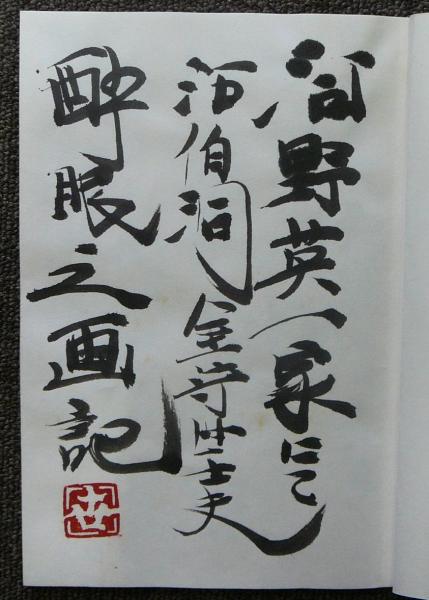 河野英一家にて
酒伯洞 金守世士夫
酔眼之画記